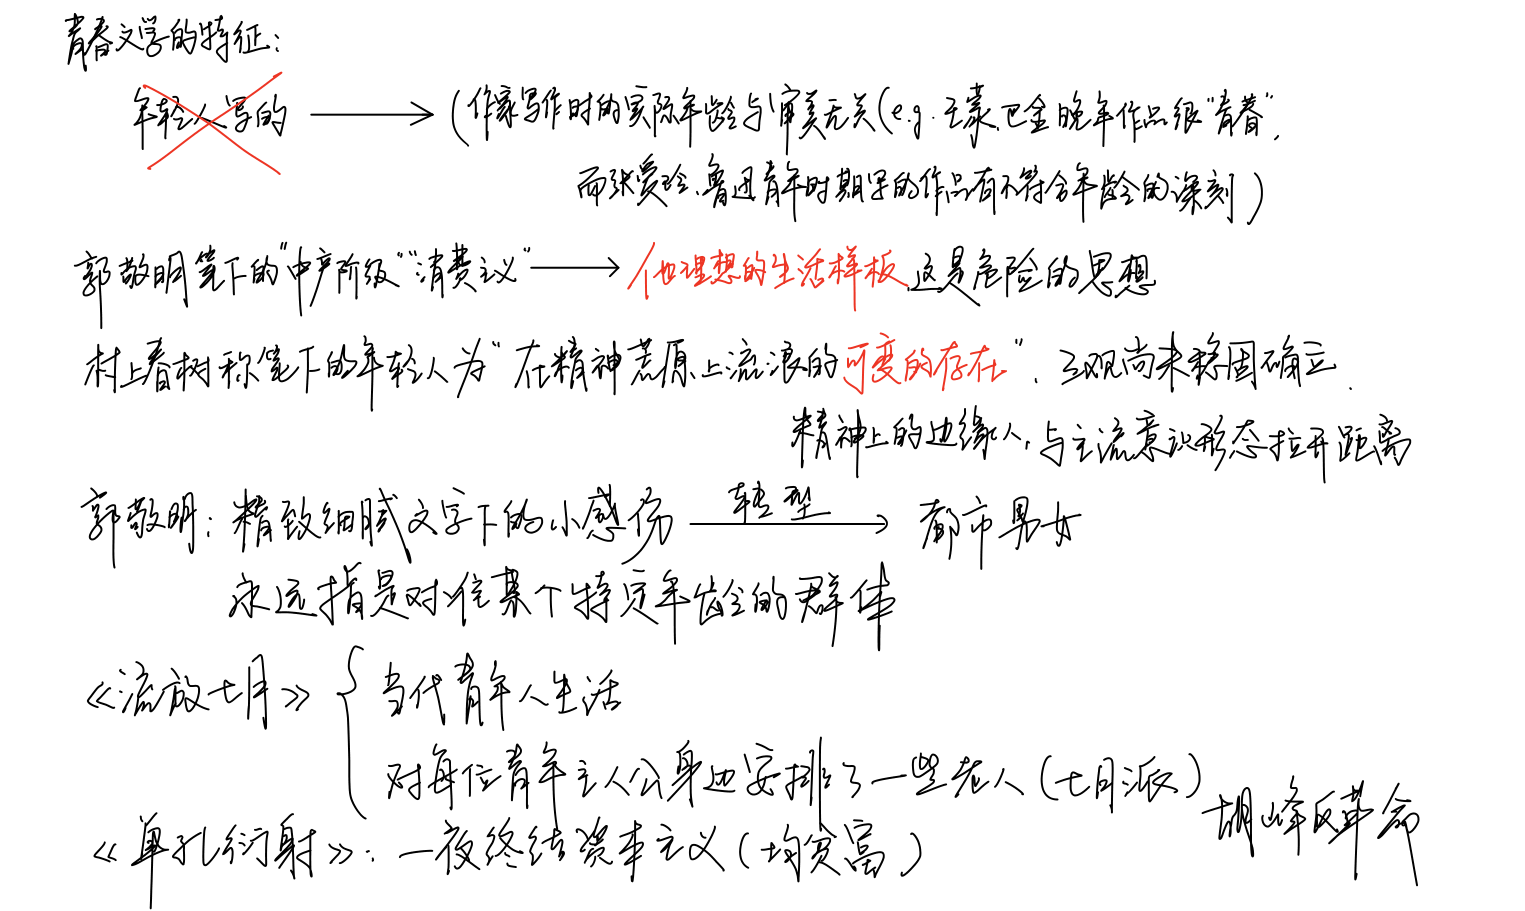 青春文学的特征：
年轻人写的 → (作家写作时的实际年龄与审美无关(e.g.王蒙、巴金晚年作品很"青春",
而张爱玲、鲁迅青年时期写的作品有不符合年龄的深刻)
郭敬明笔下的"中产阶级""消费主义" → 他理想的生活样板,这是危险的思想
村上春树称笔下的年轻人为"在精神荒原上流浪的可变的存在"，三观尚未稳固确立,
精神上的边缘人,与主流意识形态拉开距离
郭敬明：精致细腻文字下的小感伤 转型→ 都市男女
永远指是对准某个特定年龄的群体
《流放七月》{ 当代青年人生活
对每位青年主人公身边安排了一些老人(七月派)
胡峰反革命
《单孔衍射》：一夜终结资本主义(均贫富)